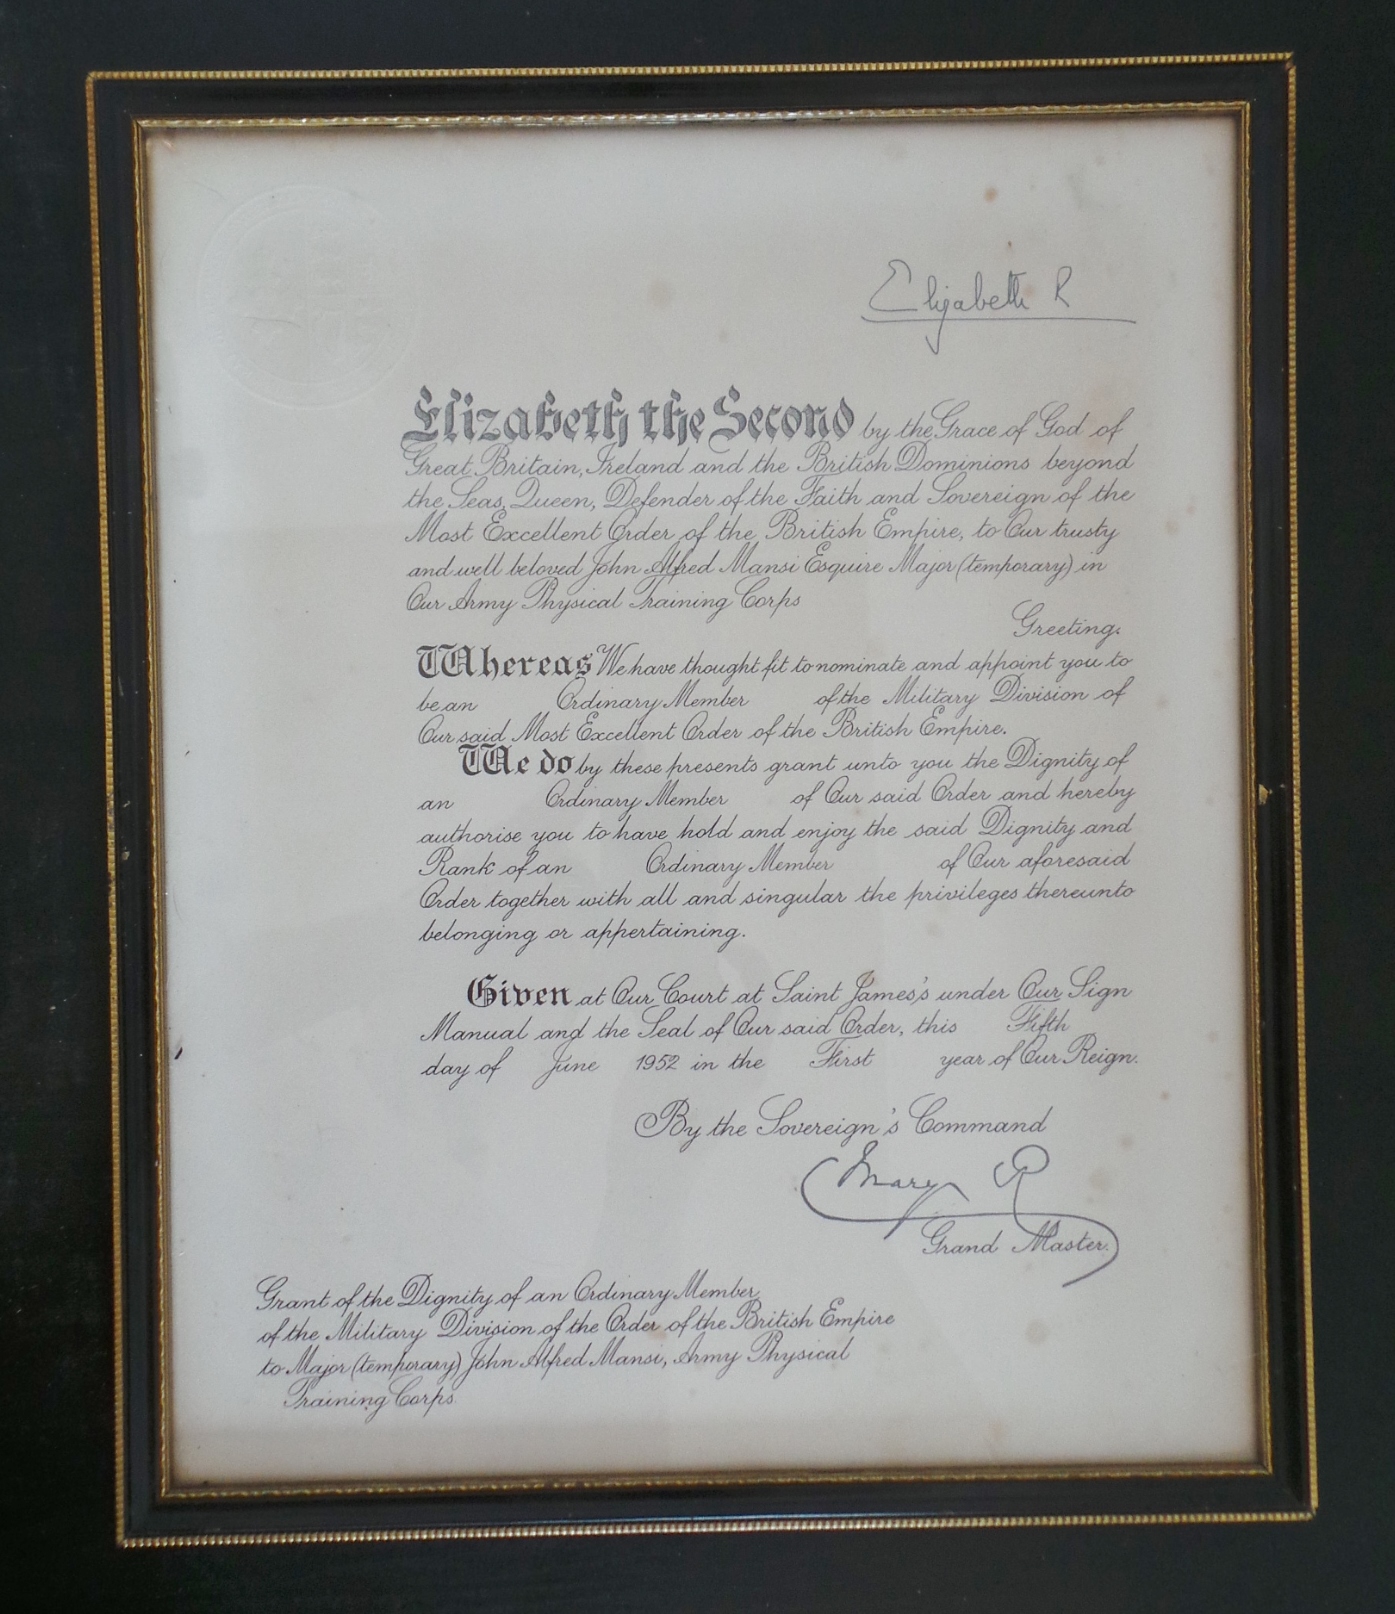 Elizabeth R
Elizabeth the Second by the Grace of God of
Great Britain, Ireland and the British Dominions beyond
the Seas, Queen, Defender of the Faith and Sovereign of the
Most Excellent Order of the British Empire, to Our trusty
and well beloved John Alfred Mansi Esquire Major (temporary) in
Our Army Physical Training Corps
Greeting.
Whereas We have thought fit to nominate and appoint you to
be an Ordinary Member of the Military Division of
Our said Most Excellent Order of the British Empire.
We do by these presents grant unto you the Dignity of
an Ordinary Member of Our said Order and hereby
authorise you to have hold and enjoy the said Dignity and
Rank of an Ordinary Member of Our aforesaid
Order together with all and singular the privileges thereunto
belonging or appertaining.
Given at Our Court at Saint James's under Our Sign
Manual and the Seal of Our said Order, this Fifth
day of June 1952 in the First year of Our Reign.
By the Sovereign's Command
Mary R
Grand Master.
Grant of the Dignity of an Ordinary Member
of the Military Division of the Order of the British Empire
to Major (temporary) John Alfred Mansi, Army Physical
Training Corps.